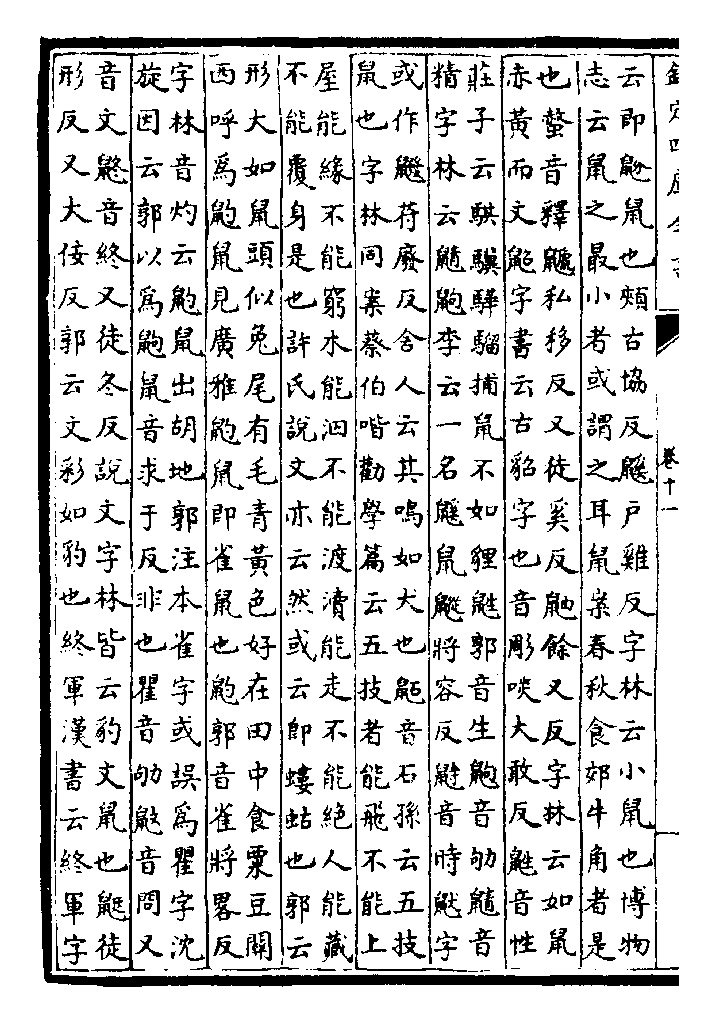 欽定四庫全書
卷十一
云即鼢鼠也頰古協反鼷戶雞反字林云小鼠也博物
志云鼠之最小者或謂之耳鼠案春秋食郊牛角者是
也螫音釋鼶私移反又徒奚反鼬餘又反字林云如鼠
赤黃而文鼦字書云古貂字也音彫啖大敢反鼪音性
莊子云騏驥驊騮捕鼠不如貍鼪郭音生鼩音劬鼱音
精字林云鼱鼩李云一名鼷鼠將容反鼭音時鼣字
或作苻廢反舍人云其鳴如犬也鼫音石孫云五技
鼠也字林同案蔡伯喈勸學篇云五技者能飛不能上
屋能緣不能窮木能泅不能渡瀆能走不能絕人能藏
不能覆身是也許氏說文亦云然或云即螻蛄也郭云
形大如鼠頭似兔尾有毛青黃色好在田中食粟豆關
西呼為鼩鼠見廣雅鼩鼠即雀鼠也鼩郭音雀將畧反
字林音灼云鼩鼠出胡地郭注本雀字或誤為瞿字沈
旋因云郭以為鼩鼠音求于反非也瞿音劬鼤音問又
音文鼨音終又徒冬反說文字林皆云豹文鼠也鼮徒
形反又大佞反郭云文彩如豹也終軍漢書云終軍字